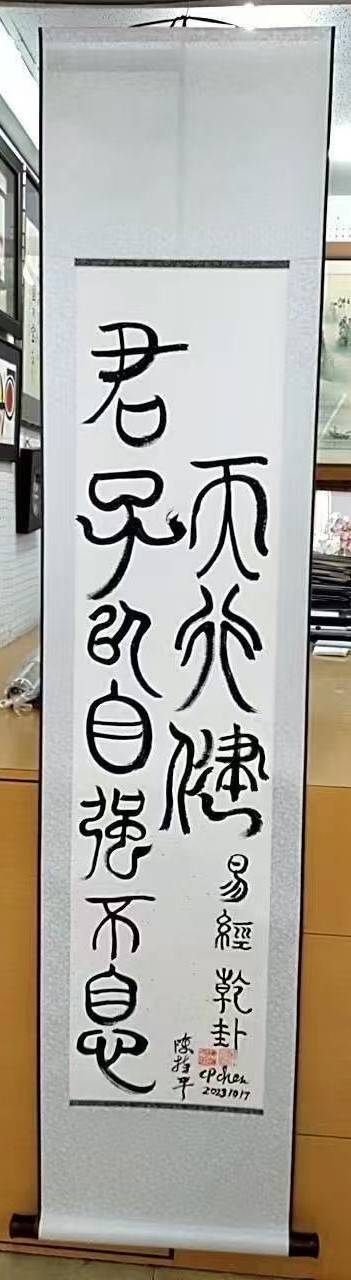 天行健
君子以自强不息
易經乾卦
陳持平
CP chen
20231017